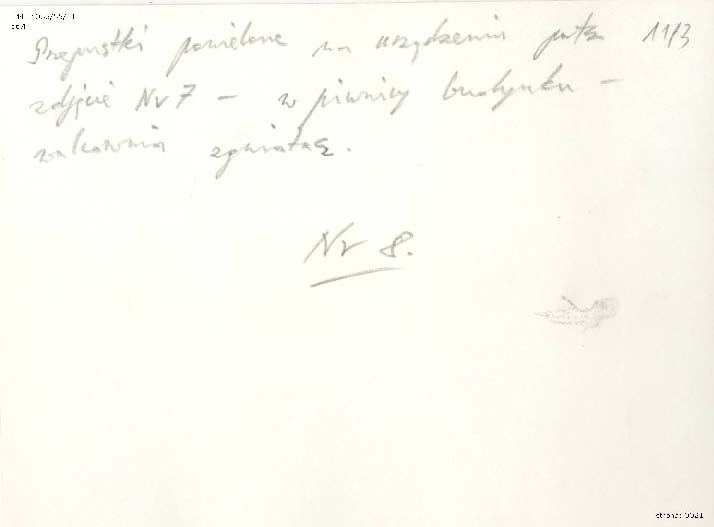 Przepustki powielone na urządzeniu patrz 11/3
zdjęcie Nr 7 – w piwnicy budynku –
walcownia zgniatacz.
Nr 8.
strona: 0021